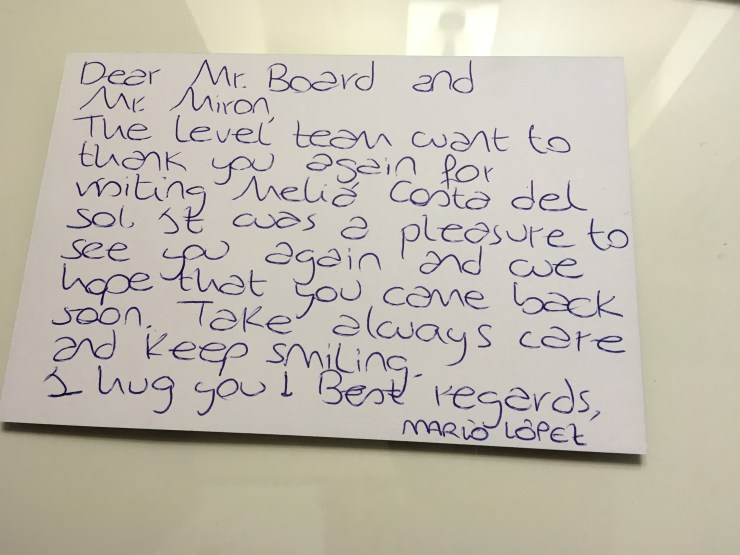 Dear Mr. Board and
Mr. Miron,
The Level team want to
thank you again for
visiting Meliá Costa del
Sol. It was a pleasure to
see you again and we
hope that you came back
soon. Take always care
and keep smiling.
I hug you! Best regards,
MARIO LÓPEZ